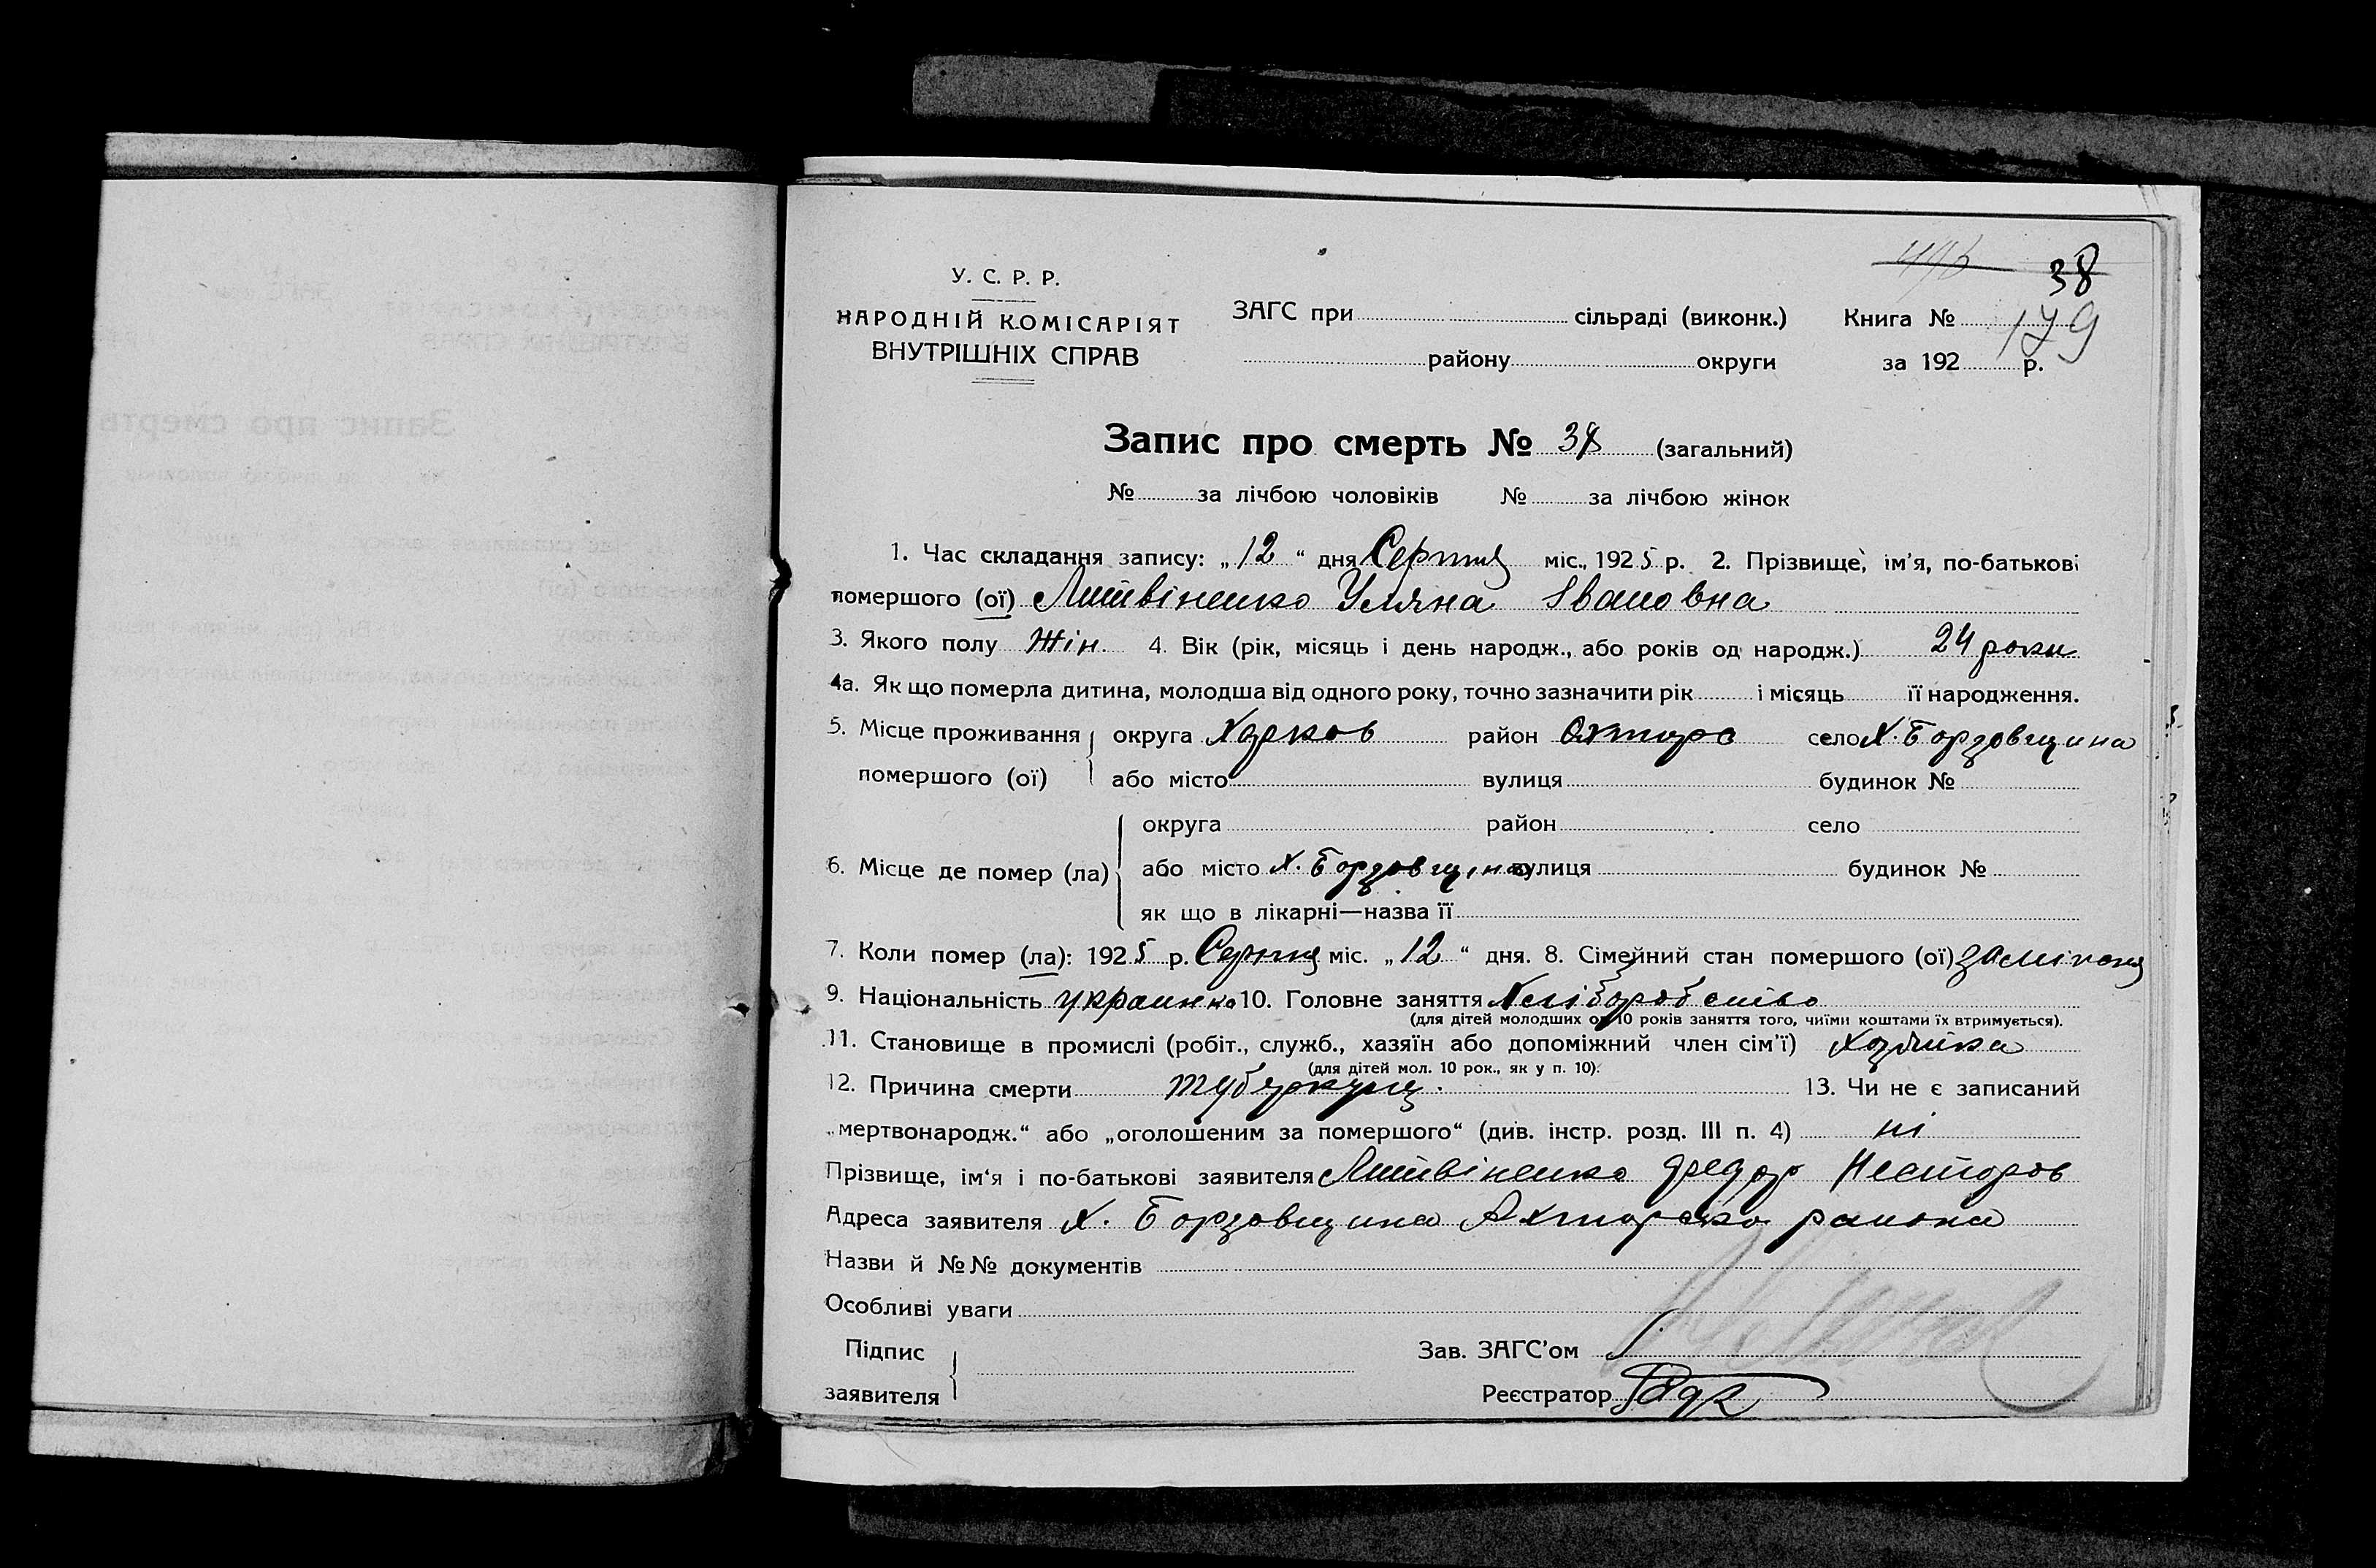 38
У. С. Р. Р.
НАРОДНІЙ КОМІСАРІЯТ
ВНУТРІШНІХ СПРАВ
ЗАГС при сільраді (виконк.)
району округи
Книга № 179
за 192 р.
Запис про смерть № 38 (загальний)
№ за лічбою чоловіків № за лічбою жінок
1. Час складання запису: „12“ дня Серпня міс., 1925 р. 2. Прізвище, ім'я, по-батькові
помершого (ої) Литвіненко Уляна Івановна
3. Якого полу Жін. 4. Вік (рік, місяць і день народж., або років од народж.) 24 роки
4а. Як що померла дитина, молодша від одного року, точно зазначити рік і місяць її народження.
5. Місце проживання помершого (ої) округа Харков район Охтирс село Х. Борзовщина
або місто вулиця будинок №
округа район село
6. Місце де помер (ла) або місто Х. Борзовщина вулиця будинок №
як що в лікарні—назва її
7. Коли помер (ла): 1925 р. Серпня міс. „12“ дня. 8. Сімейний стан помершого (ої) заміжня
9. Національність украинка 10. Головне заняття Хліборобство
(для дітей молодших од 10 років заняття того, чиїми коштами їх втримується).
11. Становище в промислі (робіт., служб., хазяїн або допоміжний член сім'ї) Хозяйка
(для дітей мол. 10 рок., як у п. 10).
12. Причина смерти туберкульоз. 13. Чи не є записаний
„мертвонародж.“ або „оголошеним за помершого“ (див. інстр. розд. III п. 4) ні
Прізвище, ім'я і по-батькові заявителя Литвіненко Федор Несторов
Адреса заявителя х. Борзовщина Ахтирсько района
Назви й №№ документів
Особливі уваги
Підпис заявителя
Зав. ЗАГС'ом
Реєстратор